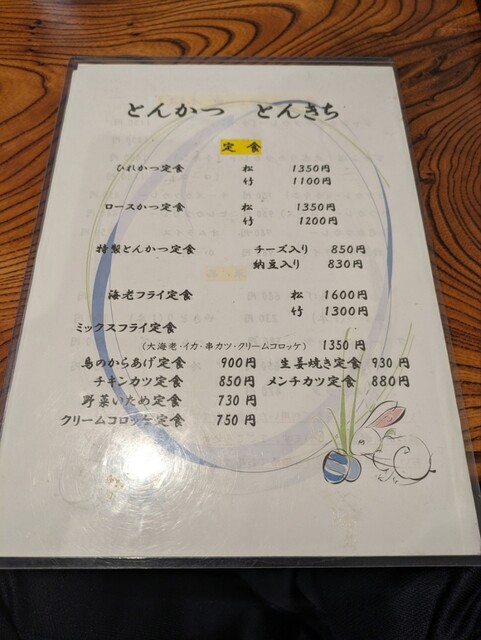 とんかつ とんきち
定食
ひれかつ定食 松 1350円
竹 1100円
ロースかつ定食 松 1350円
竹 1200円
特製とんかつ定食 チーズ入り 850円
納豆入り 830円
海老フライ定食 松 1600円
竹 1300円
ミックスフライ定食
(大海老・イカ・串カツ・クリームコロッケ) 1350円
鳥のからあげ定食 900円 生姜焼き定食 930円
チキンカツ定食 850円 メンチカツ定食 880円
野菜いため定食 730円
クリームコロッケ定食 750円